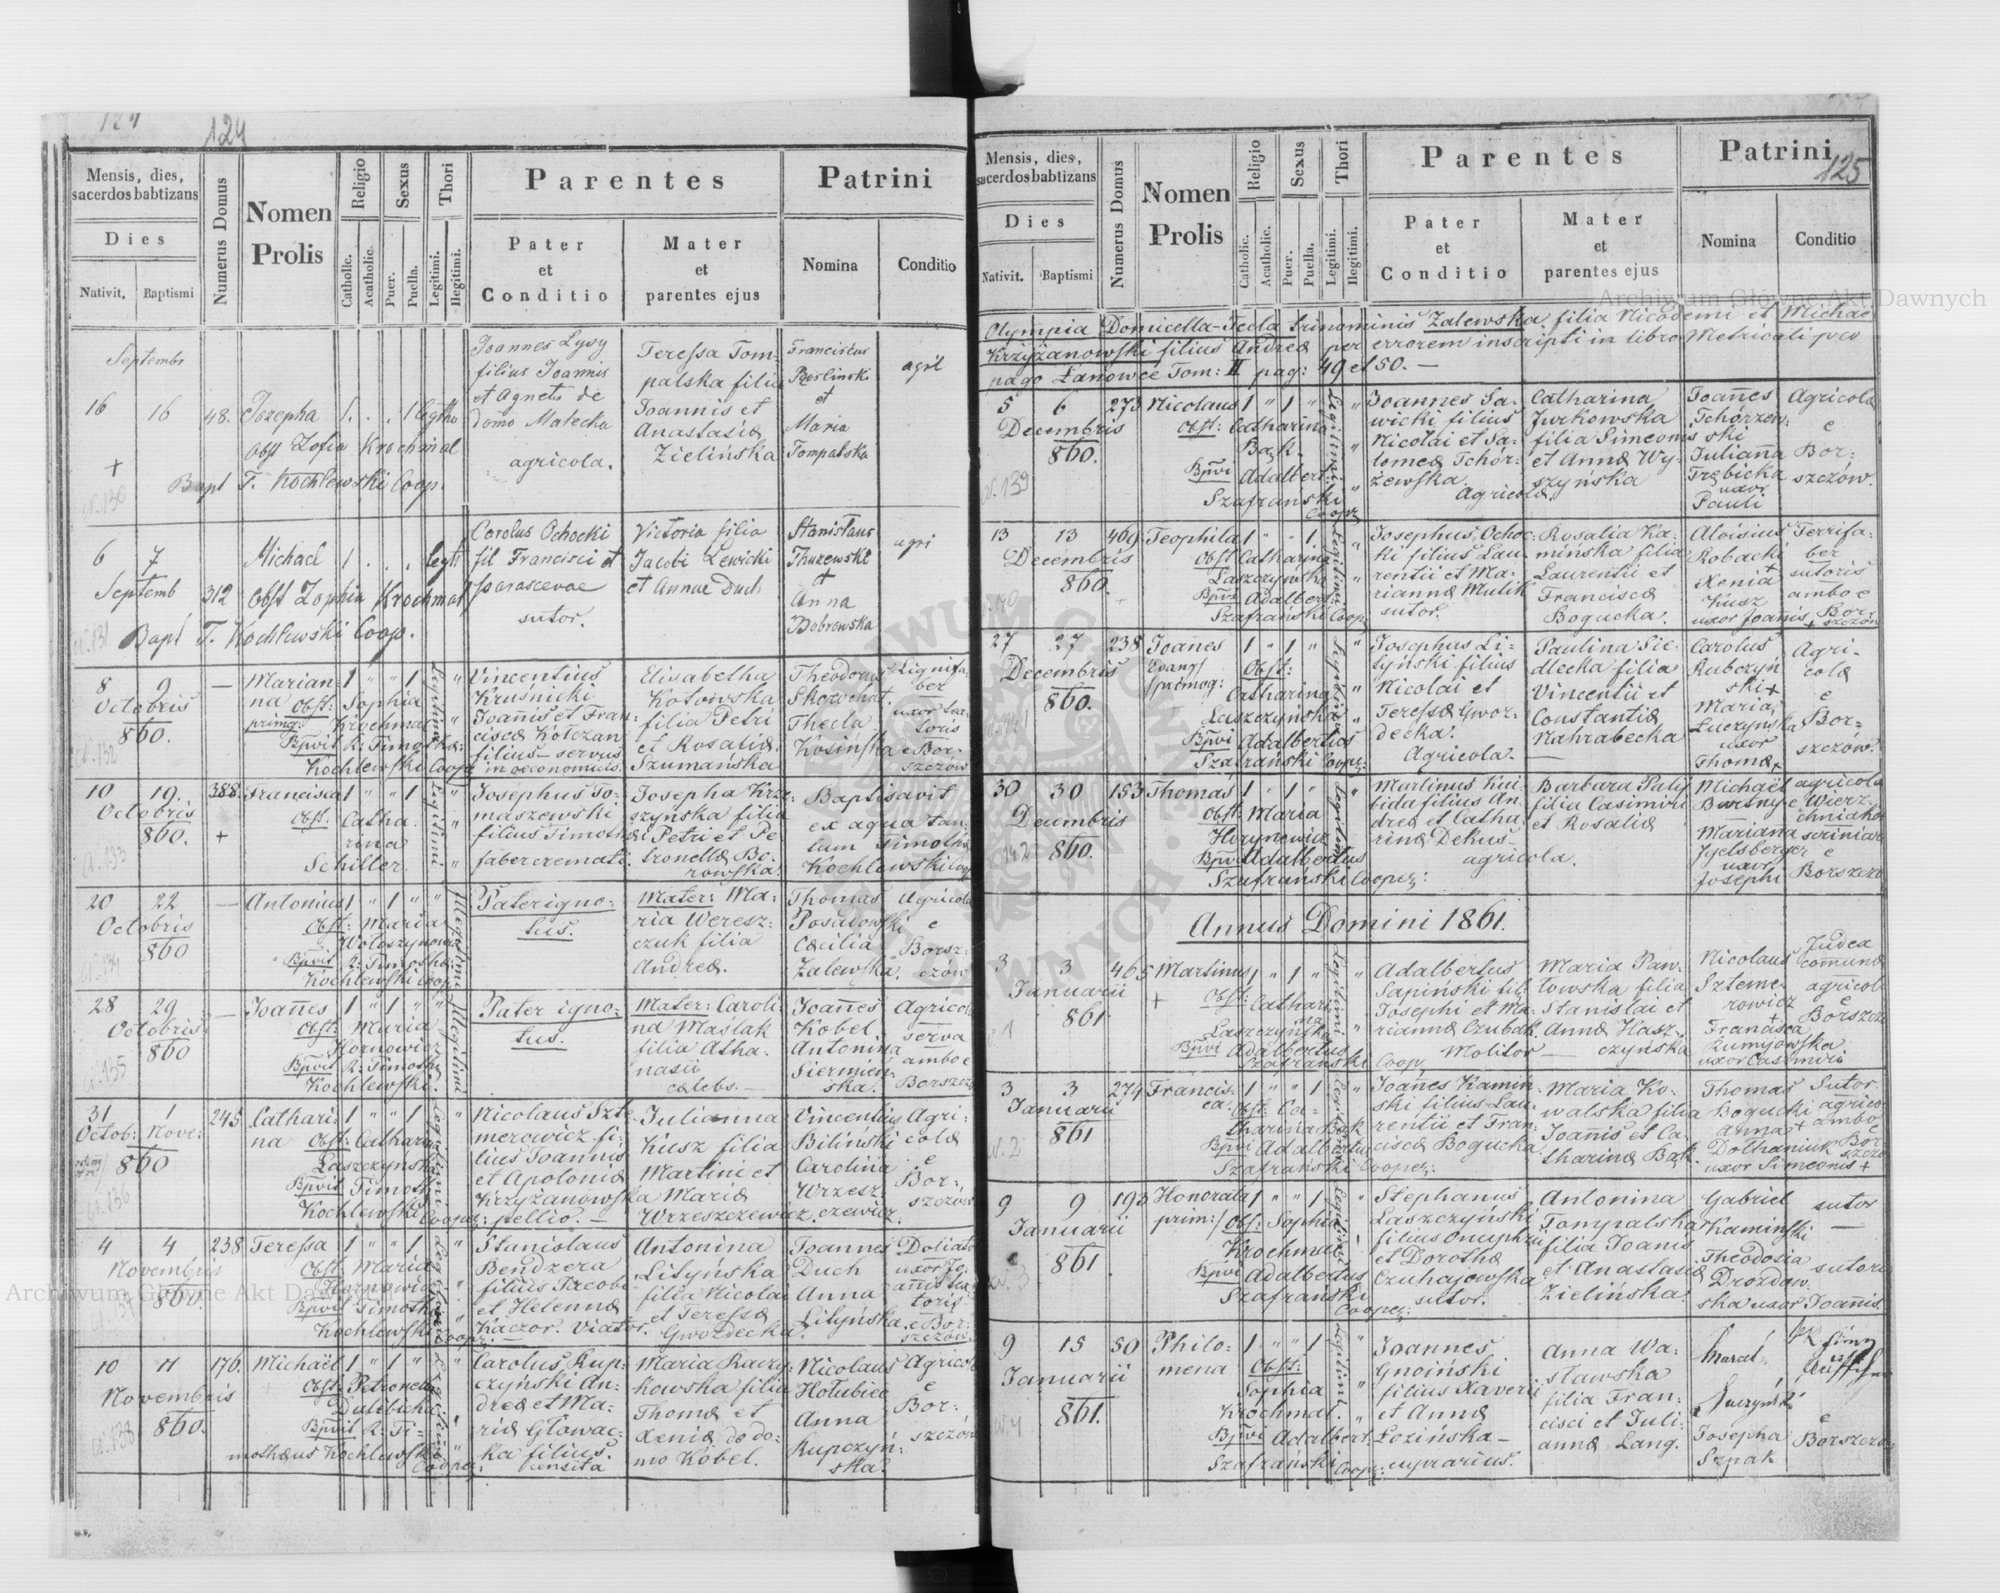 124
124
Mensis, dies,
sacerdos babtizans
Numerus Domus
Nomen
Prolis
Religio
Sexus
Thori
Parentes
Patrini
Dies
Nativit.
Baptismi
Catholic.
Acatholic.
Puer.
Puella.
Legitimi.
Illegitimi.
Pater
et
Conditio
Mater
et
parentes ejus
Nomina
Conditio
Septembr
16 16 48. Jozepha 1 . . 1 legtho
Obst Zofia Krochmal
+
Bapt T. Kochlewski Coop.
Joannes Lysy
filius Joannis
et Agnetis de
domo Malecka
agricola.
Teressa Tom-
palska filia
Joannis et
Anastasiæ
Zielińska
Franciscus
et
Maria
Tompalska
agil
6 7
Septemb 312
Michael 1 . . . legti
Obst Zophia Krochmal
Bapt T. Kochlewski Coop.
Carolus Ochocki
fil Francisci et
Parascevae
sutor.
Victoria filia
Jacobi Lewicki
et Annae Duch
Stanislaus
Thuzewski
+
Anna
Bobrowska
agri
8 9 —
Octobris
860.
Marian- 1 " " 1 "
na Obst: Sophia
prima: Krochmal
Bpvit R: Timothæ:
Kochlewski Coop:
Legitimi
Vincentius
Krusnicki
Joannis et Fran-
ciscæ Kolczan
filius – servus
in oeconomicis.
Elisabetha
Kotowska
filia Petri
et Rosaliæ
Szumańska
Theodorus
Skorochat.
Thecla
Kosińska
Lignifa-
ber
uxor tex-
toris
e Bor-
szczów
10 19. 388
Octobris
860. +
Francisca 1 " " 1 "
Obst. Catha-
rina
Schiller
Legitimi
Josephus To-
maszewski
filius Timoth
faber cremati.
Josepha Krze-
szyńska filia
Petri et Pe-
tronellæ Bo-
rowska.
Baptisavit
ex aqua tan-
tum Timothæ
Kochlewski Coop
20 22 —
Octobris
860
Antonius 1 " 1 " "
Obst: Maria
Wołoszynowa
Bpvit R: Timothæ:
Kochlewski coop.
Illegitimi
Pater igno-
tus.
Mater: Ma-
ria Weresz-
czuk filia
Andreæ.
Thomas
Posadowski
Cæcilia
Zalewska.
Agricola
e
Borsz-
czów
28 29 —
Octobris
860
Joannes 1 " 1 " "
Obst: Maria
Hornowicz
Bpvit R: Timoth
Kochlewski.
Illegitimi
Pater igno-
tus.
Mater: Caroli-
na Maślak
filia Atha-
nasii
cælebs. —
Joannes
Kobel
Antonina
Siermień-
ska.
Agricola
serva
ambo e
Borszczó
31 1 245
Octob: Nove:
860
Cathari- 1 " " 1 "
na Obst: Cathari
Laszczyńska
Bpvit Timoth
Kochlewski Cooper:
Legitimi
Nicolaus Szte-
merowicz fi-
lius Joannis
et Apoloniæ
Krzyżanowska
pellio. —
Julianna
Kusz filia
Martini et
Mariæ
Wrzeszczewicz.
Vincentius
Biliński
Carolina
Wrzesz-
czewicz.
Agri-
colæ
e
Bor-
szczów
4 4 238
Novembris
860.
Teressa 1 " " 1 "
Obst. Maria
Hornowicz
Bpvit Timoth
Kochlewski Cooper:
Stanislaus
Bendzera
filius Jacobi
et Helennæ
Kaczor. Viator.
Antonina
Lityńska
filia Nicolai
et Teressæ
Gwozdecka.
Joannes
Duch
Anna
Lityńska.
Doliator
uxor Jo-
annis tex-
toris
e Bor-
szczów
10 11 176.
Novembris
860.
Michaël 1 " 1 " "
Obst: Petronella
Dulebicka
Bpvit R: Ti-
mothæus Kochlewski
Cooper:
Carolus Kup-
czyński An-
dreæ et Ma-
riæ Głowac-
ka filius.
censita
Maria Raczy-
kowska filia
Thomæ et
Xeniæ de do-
mo Kobel.
Nicolaus
Hołubiec
Anna
Kupczyń-
ska.
Agricola
e
Bor-
szczów
Mensis, dies,
sacerdos babtizans
Numerus Domus
Nomen
Prolis
Religio
Sexus
Thori
Parentes
Patrini
125
Dies
Nativit.
Baptismi
Catholic.
Acatholic.
Puer.
Puella.
Legitimi.
Illegitimi.
Pater
et
Conditio
Mater
et
parentes ejus
Nomina
Conditio
Olympia Domicella-Tecla trinominis Zalewska filia Nicodemi et Michaël
Krzyżanowski filius Andreæ per errorem inscripti in libro Metricali pro
pago Łanowce Tom: II pag: 49 et 50. —
5 6 273
Decembris
860.
Nicolaus 1 " 1 " "
Obst: Catharina
Bąk.
Bpvi Adalbert:
Szafrański Cooper
Legitimi
Joannes Sa-
wicki filius
Nicolai et Sa-
lomeæ Tchór-
zewska.
Agricola
Catharina
Jurkowska
filia Simeonis
et Annæ Wy-
szyńska
Joannes
Tchórzew-
ski
Julianna
Trębicka
uxor
Pauli
Agricola
e
Bor-
szczów.
13 13 469
Decembris
860.
Teophila 1 " " 1 "
Obst Catharina
Laszczyńska
Bpvi Adalbert
Szafrański Cooper
Legitimi
Josephus Ochoc-
ki filius Lau-
rentii et Ma-
riannæ Mulik
sutor.
Rosalia Ka-
mińska filia
Laurentii et
Franciscæ
Bogucka.
Aloisius
Robacki
+
Xenia
Kusz
uxor Joannis
Ferrifa-
ber
sutoris
ambo e
Bor-
szczów
27 27 238
Decembris
860.
Joannes 1 " 1 " "
Evang/
primog: Obst:
Catharina
Laszczyńska
Bpvi Adalbertus
Szafrański Cooper:
Josephus Li-
tyński filius
Nicolai et
Teressæ Gwoz-
decka.
Agricola. —
Paulina Sie-
dlecka filia
Vincentii et
Constantiæ
Nahrabecka
Carolus
Rubczyń-
ski +
Maria
Łuczyńska
uxor
Thomæ
Agri-
colæ
e
Bor-
szczów.
30 30 153
Decembris
860.
Thomas 1 " 1 " "
Obst: Maria
Horynewicz
Bpvi Adalbertus
Szafrański Cooper:
Martinus Kui-
bida filius An-
dreæ et Catha-
rinæ Dekus
agricola.
Barbara Palij
filia Casimiri
et Rosaliæ
Michaël
Mariana
uxor
Josephi
agricola
e Wierz-
chniako
e
Borszczó
Annus Domini 1861.
3 3 465
Januarii
861
Martinus 1 " 1 " "
+ Obst: Cathari-
na
Laszczyńska
Bpvi Adalbertus
Szafrański Coop.
Legitimi
Adalbertus
Sapiński fil-
Josephi et Ma-
riannæ Czubak.
Molitor —
Maria Paw-
łowska filia
Stanislai et
Annæ Hasz-
czyńska
Nicolaus
Szteme-
rowicz
+
Francisca
uxor Casimiri
Judea
commune
agricol
e
Borszczó
3 3 274
Januarii
861
Francis- 1 " " 1 "
ca. Obst: Ca-
tharina Bąk
Bpvi Adalbertus
Szafrański Cooper:
Joannes Kamiń-
ski filius Lau-
rentii et Fran-
ciscæ Bogucka
Maria Ko-
walska filia
Joannis et Ca-
tharinæ Bąk.
Thomas
Bogucki
Anna +
Dolhaniuk
uxor Simeonis +
Sutor
agrico
ambo
e
Bor-
szczó
9 9 193
Januarii
861
Honorata 1 " " 1 "
prim:/ Obst: Sophia
Krochmal
Bpvi Adalbertus
Szafrański
Cooper:
Stephanus
Laszczyński
filius Onuphrii
et Dorotheæ
Czuhajowska
sutor.
Antonina
Tompalska
filia Joanis
et Anastasiæ
Zielińska
Gabriel
Kamiński
Theodosia
Drozdow-
ska uxor Joannis.
sutor
—
sutoris
9 15 50
Januarii
861.
Philo- 1 " " 1 "
mena Obst:
Sophia
Krochmal.
Bpvi Adalbert:
Szafrański Cooper:
Legitimi
Joannes
Gnoiński
filius Xaverii
et Annæ
Łozińska —
cuprarius.
Anna Wa-
sławska
filia Fran-
cisci et Juli-
annæ Lang.
Marceli
Josepha
Szpak
e
Borszczów
Archiwum Główne Akt Dawnych
Archiwum Główne Akt Dawnych